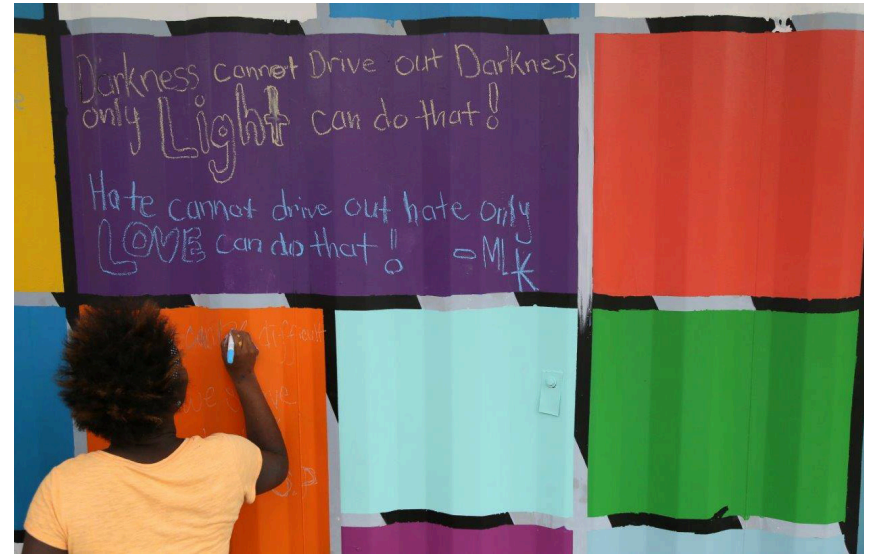 Darkness cannot Drive out Darkness
only Light can do that!
Hate cannot drive out hate only
LOVE can do that! - MLK
difficult